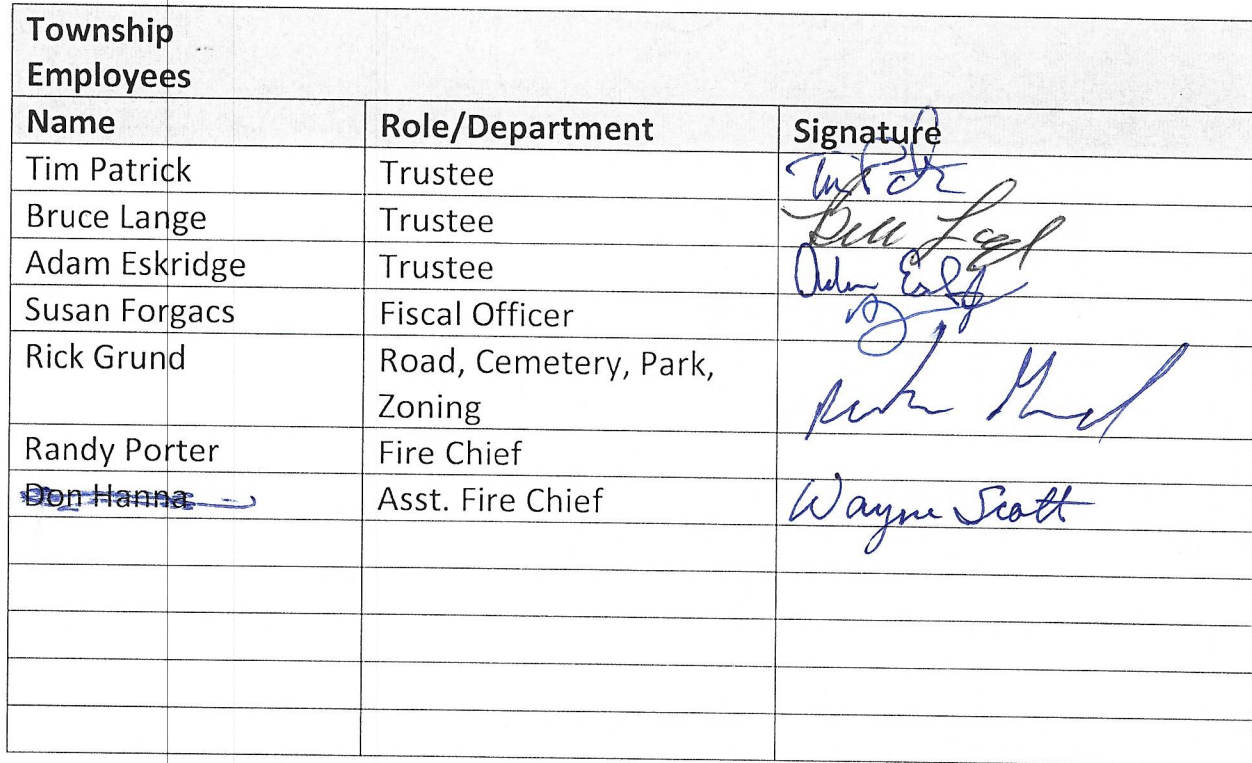 Township
Employees
Name Role/Department Signature
Tim Patrick Trustee
Bruce Lange Trustee
Adam Eskridge Trustee
Susan Forgacs Fiscal Officer
Rick Grund Road, Cemetery, Park,
Zoning
Randy Porter Fire Chief
Don Hanna Asst. Fire Chief Wayne Scott